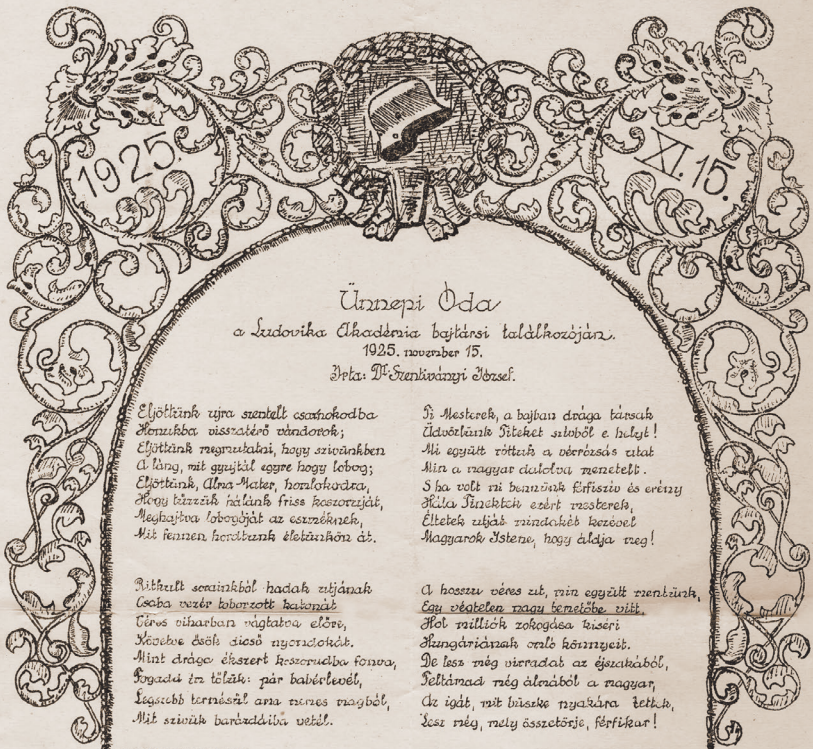 1925.
XI. 15.
Ünnepi Óda
a Ludovika Akadémia bajtársi találkozóján.
1925. november 15.
Irta: Dr Szentiványi József.
Eljöttünk ujra szentelt csarnokodba
Honukba visszatérő vándorok;
Eljöttünk megmutatni, hogy szivünkben
A láng, mit gyujtál egyre hogy lobog;
Eljöttünk, Alma Mater, homlokodra,
Hogy tüzzük hálánk friss koszoruját,
Meghajtva lobogóját az eszméknek,
Mit fennen hordtunk életünkön át.
Ritkult sorainkból hadak utjának
Csaba vezér toborzott katonát
Véres viharban vágtatva előre,
Követve ősök dicső nyomdokát.
Mint drága ékszert koszorudba fonva,
Fogadd én tőlük: pár babérlevél,
Legszebb termésül ama nemes magból,
Mit szivük barázdáiba vetél.
Ti Mesterek, a bajban drága társak
Üdvözlünk Titeket szivből e helyt!
Mi együtt róttuk a vérrózsás utat
Min a magyar dalolva menetelt.
S ha volt mi bennünk férfisziv és erény
Hála Tinektek ezért mesterek,
Éltetek utját mindakét kezével
Magyarok Istene, hogy áldja meg!
A hosszu véres ut, min együtt mentünk,
Egy végtelen nagy temetőbe vitt,
Hol milliók zokogása kiséri
Hungáriának omló könnyeit.
De lesz még virradat az éjszakából,
Feltámad még álmából a magyar,
Az igát, mit büszke nyakára tettek,
Lesz még, mely összetörje, férfikar!